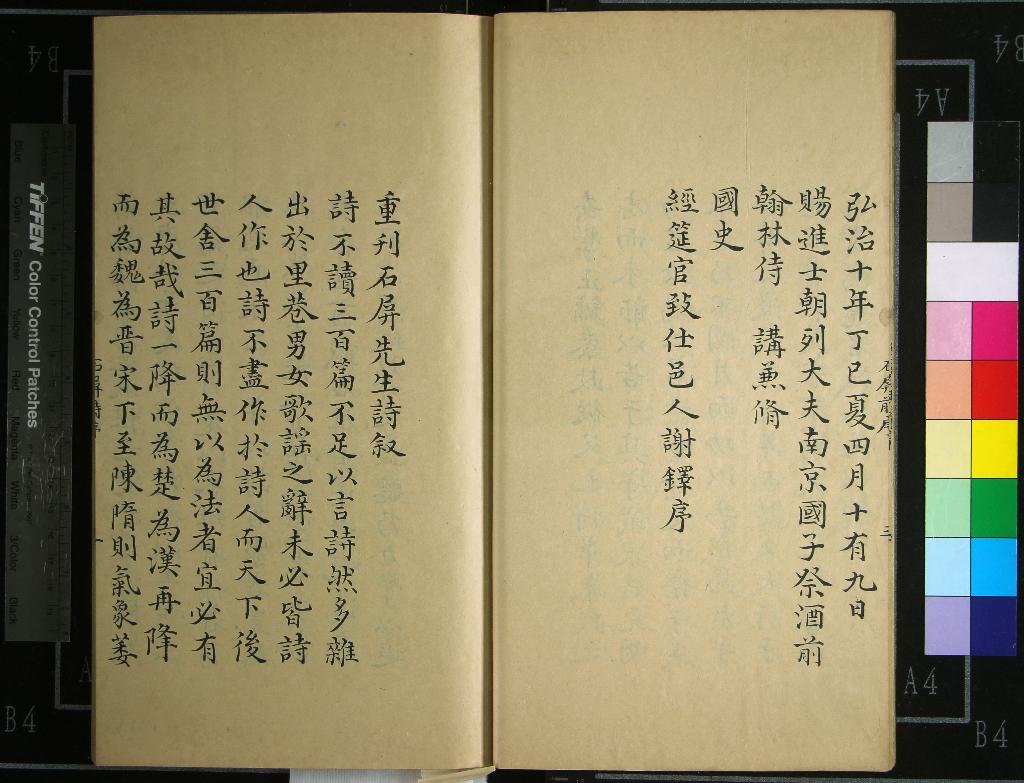 弘治十年丁巳夏四月十有九日
賜進士朝列大夫南京國子祭酒前
翰林侍　講兼脩
國史
經筵官致仕邑人謝鐸序
三
重刊石屏先生詩叙
詩不讀三百篇不足以言詩然多雜
出於里巷男女歌謡之辭未必皆詩
人作也詩不盡作於詩人而天下後
世舍三百篇則無以為法者宜必有
其故哉詩一降而為楚為漢再降
而為魏為晋宋下至陳隋則氣象萎
一
TIFFEN Color Control Patches
Blue
Cyan
Green
Yellow
Red
Magenta
White
3/Color
Black
B4
A4
B4
A4
A4
B4